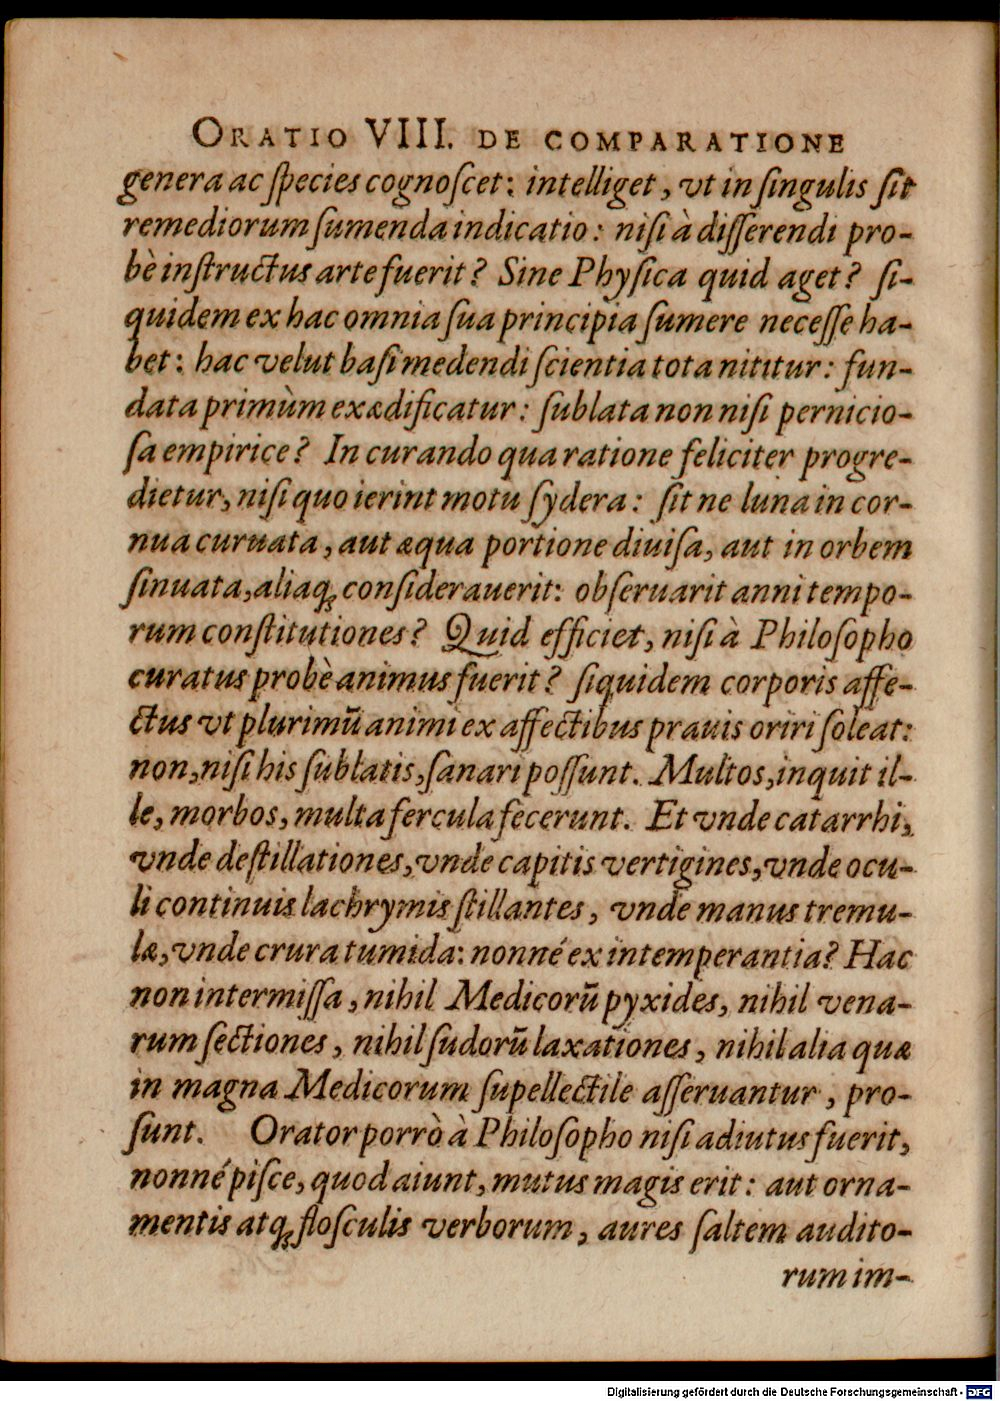 ORATIO VIII. DE COMPARATIONE
genera ac ſpecies cognoſcet: intelliget, vt in ſingulis ſit
remediorum ſumenda indicatio: niſi à diſſerendi pro-
bè inſtructus arte fuerit? Sine Phyſica quid aget? ſi-
quidem ex hac omnia ſua principia ſumere neceſſe ha-
bet: hac velut baſi medendi ſcientia tota nititur: fun-
data primùm exædificatur: ſublata non niſi pernicio-
ſa empirice? In curando qua ratione feliciter progre-
dietur, niſi quo ierint motu ſydera: ſit ne luna in cor-
nua curuata, aut æqua portione diuiſa, aut in orbem
ſinuata, aliaq; conſiderauerit: obſeruarit anni tempo-
rum conſtitutiones? Quid efficiet, niſi à Philoſopho
curatus probè animus fuerit? ſiquidem corporis affe-
ctus vt plurimũ animi ex affectibus prauis oriri ſoleat:
non, niſi his ſublatis, ſanari poſſunt. Multos, inquit il-
le, morbos, multa fercula fecerunt. Et vnde catarrhi,
vnde deſtillationes, vnde capitis vertigines, vnde ocu-
li continuis lachrymis ſtillantes, vnde manus tremu-
læ, vnde crura tumida: nonné ex intemperantia? Hac
non intermiſſa, nihil Medicorũ pyxides, nihil vena-
rum ſectiones, nihil ſudorũ laxationes, nihil alia quæ
in magna Medicorum ſupellectile aſſeruantur, pro-
ſunt. Orator porrò à Philoſopho niſi adiutus fuerit,
nonné piſce, quod aiunt, mutus magis erit: aut orna-
mentis atq; floſculis verborum, aures ſaltem audito-
rum im-
Digitalisierung gefördert durch die Deutsche Forschungsgemeinschaft - DFG